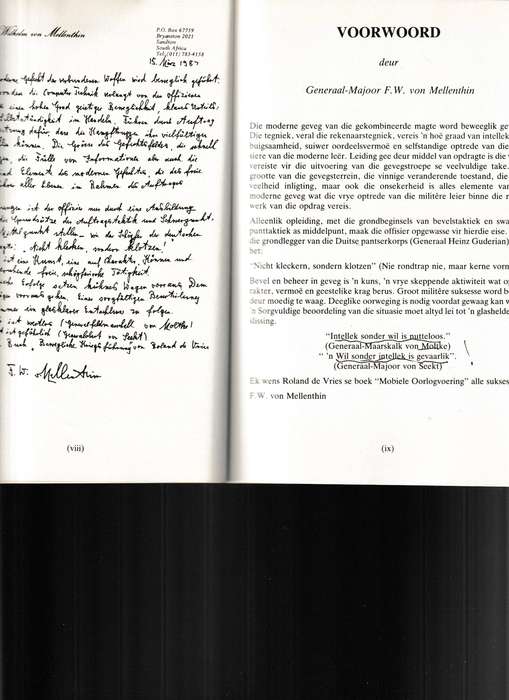 Wilhelm von Mellenthin
P.O. Box 67719
Bryanston 2021
Sandton
South Africa
Tel. (011) 783-4158
15. März 1987
Gefecht der verbundenen Waffen wird beweglich geführt.
Computer Technik verlangt von den Offizieren
einen hohen Grad geistiger Beweglichkeit, klaren
im Handeln. Führen durch Auftrag
dafür, dass die Kampftruppe ihre vielfältigen
können. Die Grösse des Gefechtsfeldes, die schnell
die Fülle von Informationen aber auch die
sind Elemente des modernen Gefechtes, die das freie
aller Ebenen im Rahmen des Auftrages
ist der Offizier nur durch eine Ausbildung
Grundsätze der Auftragstaktik und Schwerpunkt
stellen – wie der Schöpfer der deutschen
"Nicht kleckern, sondern klotzen!"
ist eine Kunst, eine auf Charakter, Können und
freie, schöpferische Tätigkeit.
Erfolge setzen kühnes Wagen voraus. Dem
gehen. Eine sorgfältige Beurteilung
zu folgen.
ist wertlos (Generalfeldmarschall von Moltke)
ist gefährlich (Generaloberst von Seekt)
Buch "Bewegliche Kriegsführung" von Roland de Vries
F. W. v Mellenthin
(viii)
VOORWOORD
deur
Generaal-Majoor F.W. von Mellenthin
Die moderne geveg van die gekombineerde magte word beweeglik ge
Die tegniek, veral die rekenaarstegniek, vereis 'n hoë graad van intellek
buigsaamheid, suiwer oordeelsvermoë en selfstandige optrede van die
siere van die moderne leër. Leiding gee deur middel van opdragte is die v
vereiste vir die uitvoering van die gevegstroepe se veelvuldige take.
grootte van die gevegsterrein, die vinnige veranderende toestand, die
veelheid inligting, maar ook die onsekerheid is alles elemente van
moderne geveg wat die vrye optrede van die militêre leier binne die r
werk van die opdrag vereis.
Alleenlik opleiding, met die grondbeginsels van bevelstaktiek en swa
punttaktiek as middelpunt, maak die offisier opgewasse vir hierdie eise.
die grondlegger van die Duitse pantserkorps (Generaal Heinz Guderian)
het:
"Nicht kleckern, sondern klotzen" (Nie rondtrap nie, maar kerne vorm
Bevel en beheer in geveg is 'n kuns, 'n vrye skeppende aktiwiteit wat op
rakter, vermoë en geestelike krag berus. Groot militêre suksesse word b
deur moedig te waag. Deeglike oorweging is nodig voordat gewaag kan w
'n Sorgvuldige beoordeling van die situasie moet altyd lei tot 'n glashelde
slissing.
"Intellek sonder wil is nutteloos."
(Generaal-Maarskalk von Molike)
" 'n Wil sonder intellek is gevaarlik".
(Generaal-Majoor von Seekt)
Ek wens Roland de Vries se boek "Mobiele Oorlogvoering" alle sukses
F.W. von Mellenthin
(ix)